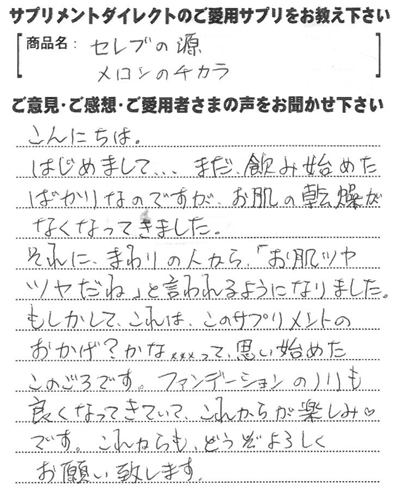 サプリメントダイレクトのご愛用サプリをお教え下さい
商品名： セレブの源
メロンのチカラ
ご意見・ご感想・ご愛用者さまの声をお聞かせ下さい
こんにちは。
はじめまして、、、まだ、飲み始めた
ばかりなのですが、お肌の乾燥が
なくなってきました。
それに、まわりの人から、「お肌ツヤ
ツヤだね」と言われるようになりました。
もしかして、これは、このサプリメントの
おかげ？かな×××って、思い始めた
このごろです。ファンデーションのノリも
良くなってきていて、これからが楽しみ♡
です。これからも、どうぞよろしく
お願い致します。